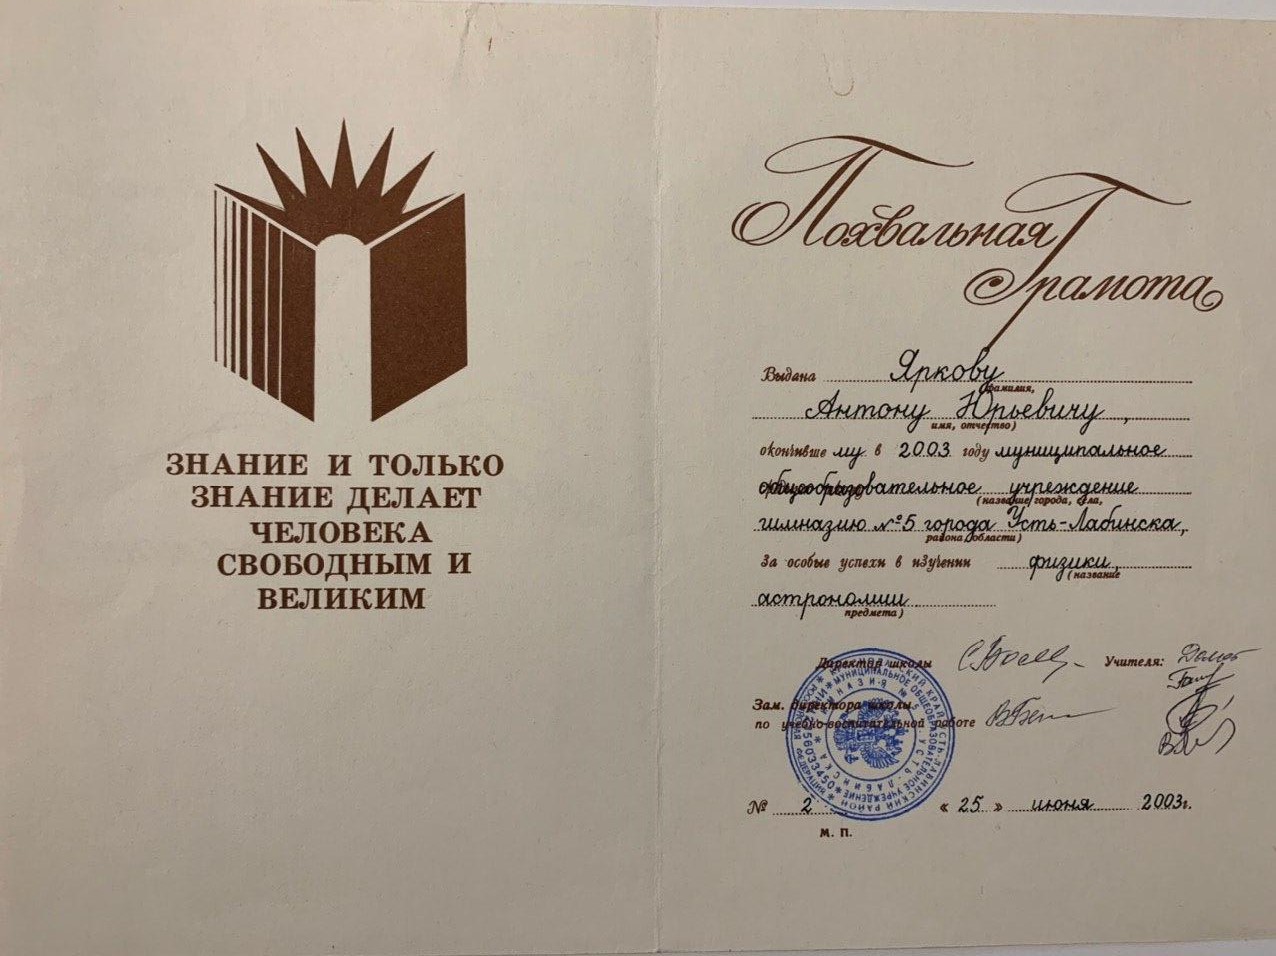 ЗНАНИЕ И ТОЛЬКО
ЗНАНИЕ ДЕЛАЕТ
ЧЕЛОВЕКА
СВОБОДНЫМ И
ВЕЛИКИМ
Похвальная
Грамота
Выдана Яркову
(фамилия,
Антону Юрьевичу,
имя, отчество)
окончивше му в 2003 году муниципальное
общеобразовательное учреждение
(название города, села,
гимназию №5 города Усть-Лабинска,
района, области)
За особые успехи в изучении физики,
(название
астрономии
предмета)
Директор школы
Учителя:
Зам. директора школы
по учебно-воспитательной работе
№ 2
« 25 » июня 2003г.
М. П.